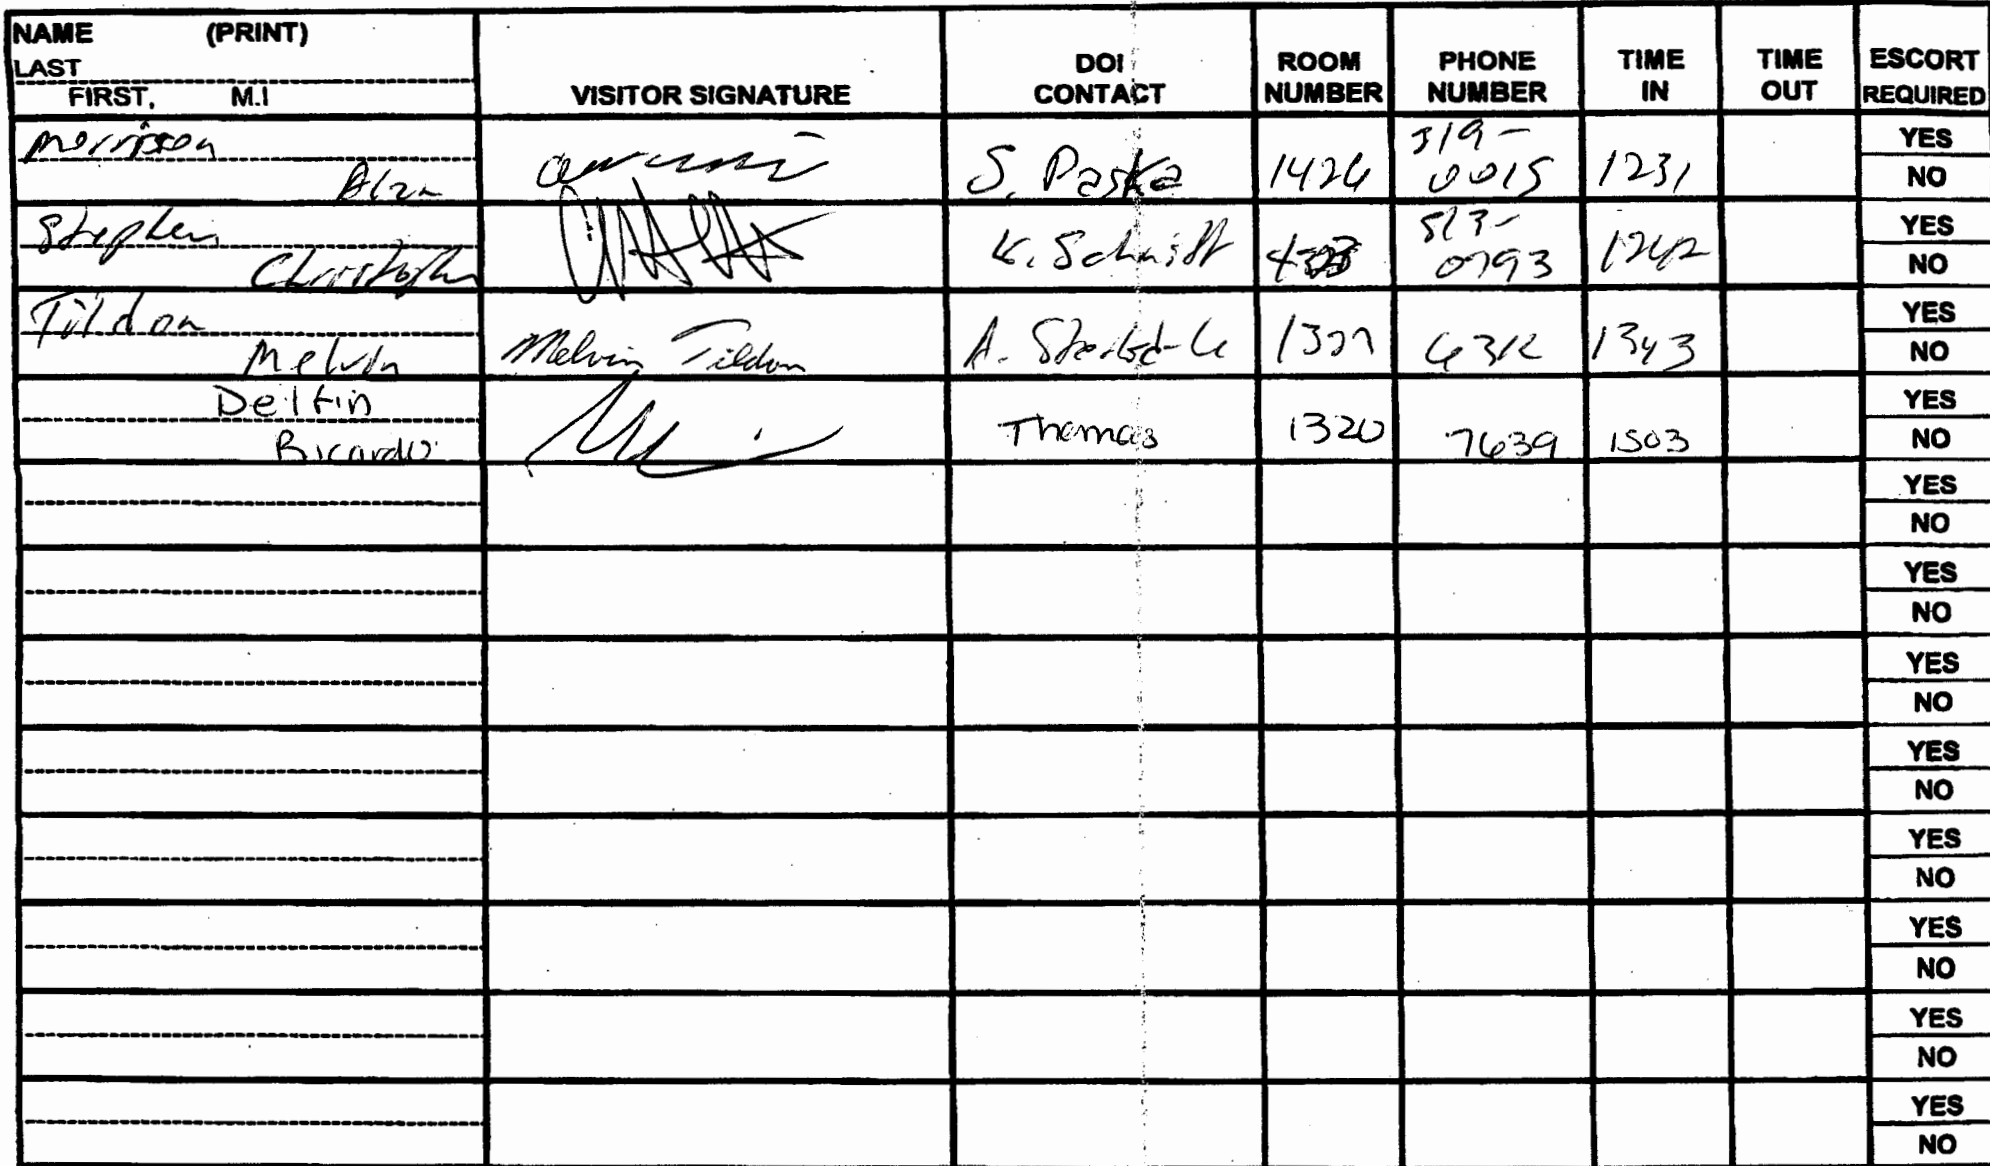 NAME (PRINT)
LAST
FIRST, M.I
VISITOR SIGNATURE
DOI CONTACT
ROOM NUMBER
PHONE NUMBER
TIME IN
TIME OUT
ESCORT REQUIRED
Morrison
Alan
S. Paska 1426 319-0015 1231 YES
NO
Stephen
Christopher
K. Schmidt 513-0793 1242 YES
NO
Tildon
Melvin
Melvin Tildon A. 1343 YES
NO
Delfin
Ricardo
Thomas 1320 7639 1503 YES
NO
YES
NO
YES
NO
YES
NO
YES
NO
YES
NO
YES
NO
YES
NO
YES
NO